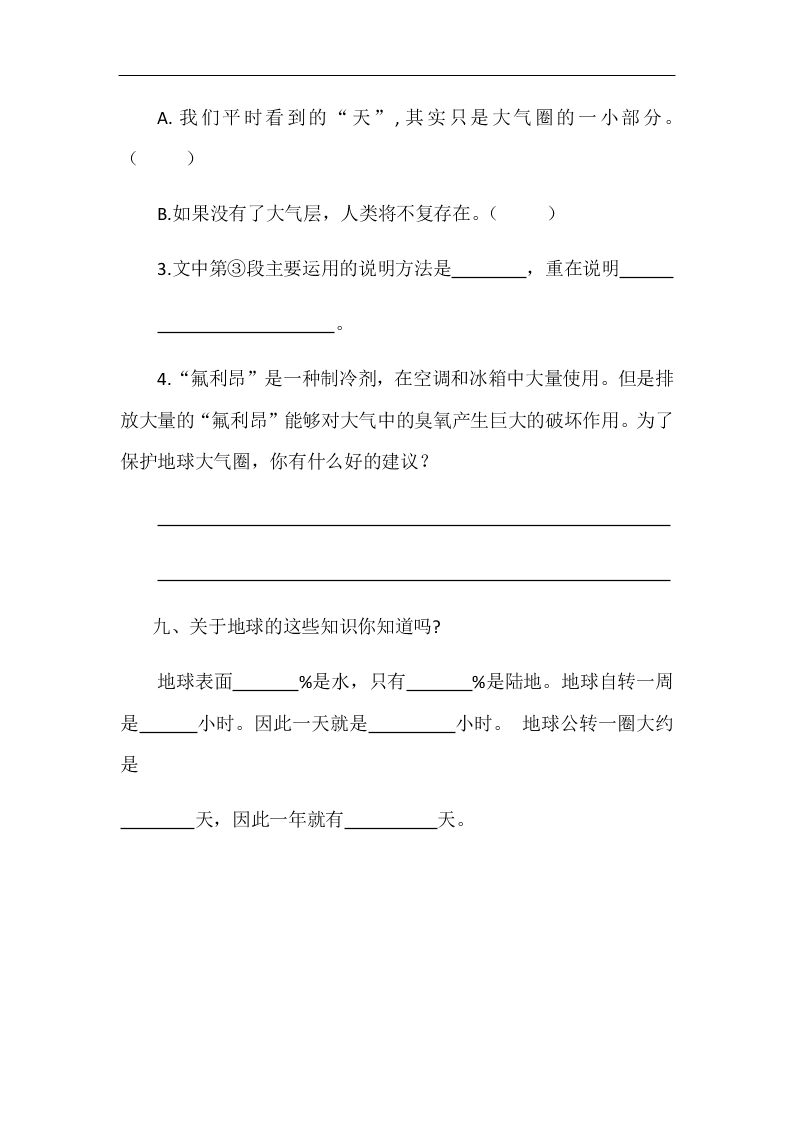 A. 我们平时看到的“天”,其实只是大气圈的一小部分。
（ ）
B.如果没有了大气层，人类将不复存在。（ ）
3.文中第③段主要运用的说明方法是________，重在说明______
___________________。
4.“氟利昂”是一种制冷剂，在空调和冰箱中大量使用。但是排
放大量的“氟利昂”能够对大气中的臭氧产生巨大的破坏作用。为了
保护地球大气圈，你有什么好的建议？
九、关于地球的这些知识你知道吗?
地球表面_______%是水，只有_______%是陆地。地球自转一周
是______小时。因此一天就是_________小时。 地球公转一圈大约
是
________天，因此一年就有__________天。